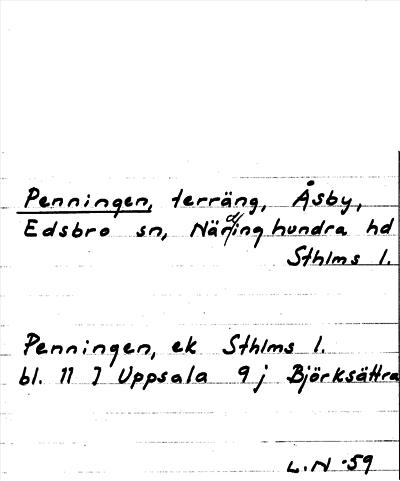 Penningen, terräng, Åsby,
Edsbro sn, Närdinghundra hd
Sthlms l.
Penningen, ek Sthlms l.
bl. 11 J Uppsala 9 j Björksättra
L.N -59